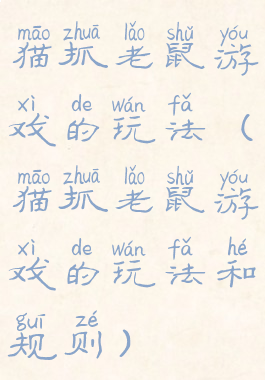 māo zhuā lǎo shǔ yóu
猫抓老鼠游
xì de wán fǎ
戏的玩法（
māo zhuā lǎo shǔ yóu
猫抓老鼠游
xì de wán fǎ hé
戏的玩法和
guī zé
规则）